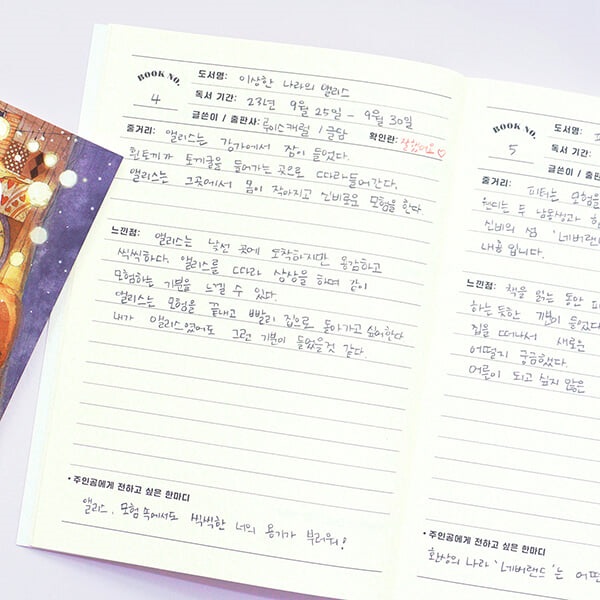 BOOK NO.
4
도서명: 이상한 나라의 앨리스
독서 기간: 23년 9월 25일 - 9월 30일
글쓴이 / 출판사: 루이스캐럴 / 글담 확인란: 잘했어요♡
줄거리: 앨리스는 강가에서 잠이 들었다.
흰토끼가 토끼굴을 들어가는 곳으로 따라들어간다.
앨리스는 그곳에서 몸이 작아지고 신비로운 모험을 한다
느낀점: 앨리스는 낯선 곳에 도착하지만 용감하고
씩씩하다. 앨리스를 따라 상상을 하며 같이
모험하는 기분을 느낄 수 있다.
앨리스는 모험을 끝내고 빨리 집으로 돌아가고 싶어한다
내가 앨리스였어도 그런 기분이 들었을것 같다.
• 주인공에게 전하고 싶은 한마디
앨리스, 모험 속에서도 씩씩한 너의 용기가 부러워!
BOOK NO.
5
도서명:
독서 기간:
글쓴이 /
줄거리: 피터는 모험을
웬디는 두 남동생과 함
신비의 섬 '네버랜드
내용 입니다.
느낀점: 책을 읽는 동안 피
하는 듯한 기분이 들었다
집을 떠나서 새로운
어떨지 궁금했다.
어른이 되고 싶지 않은
• 주인공에게 전하고 싶은 한마디
환상의 나라 '네버랜드'는 어떤